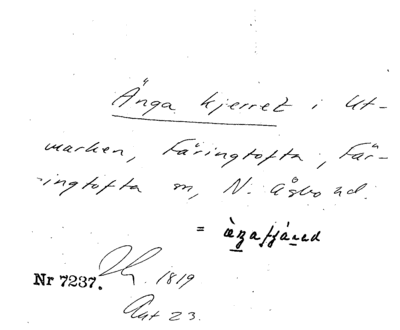 Änga kjerret i Ut-
marken, Färingtofta, Fär-
ingtofta sn, N. Åsbo hd.
=
Nr 7237. 1819
Akt 23.